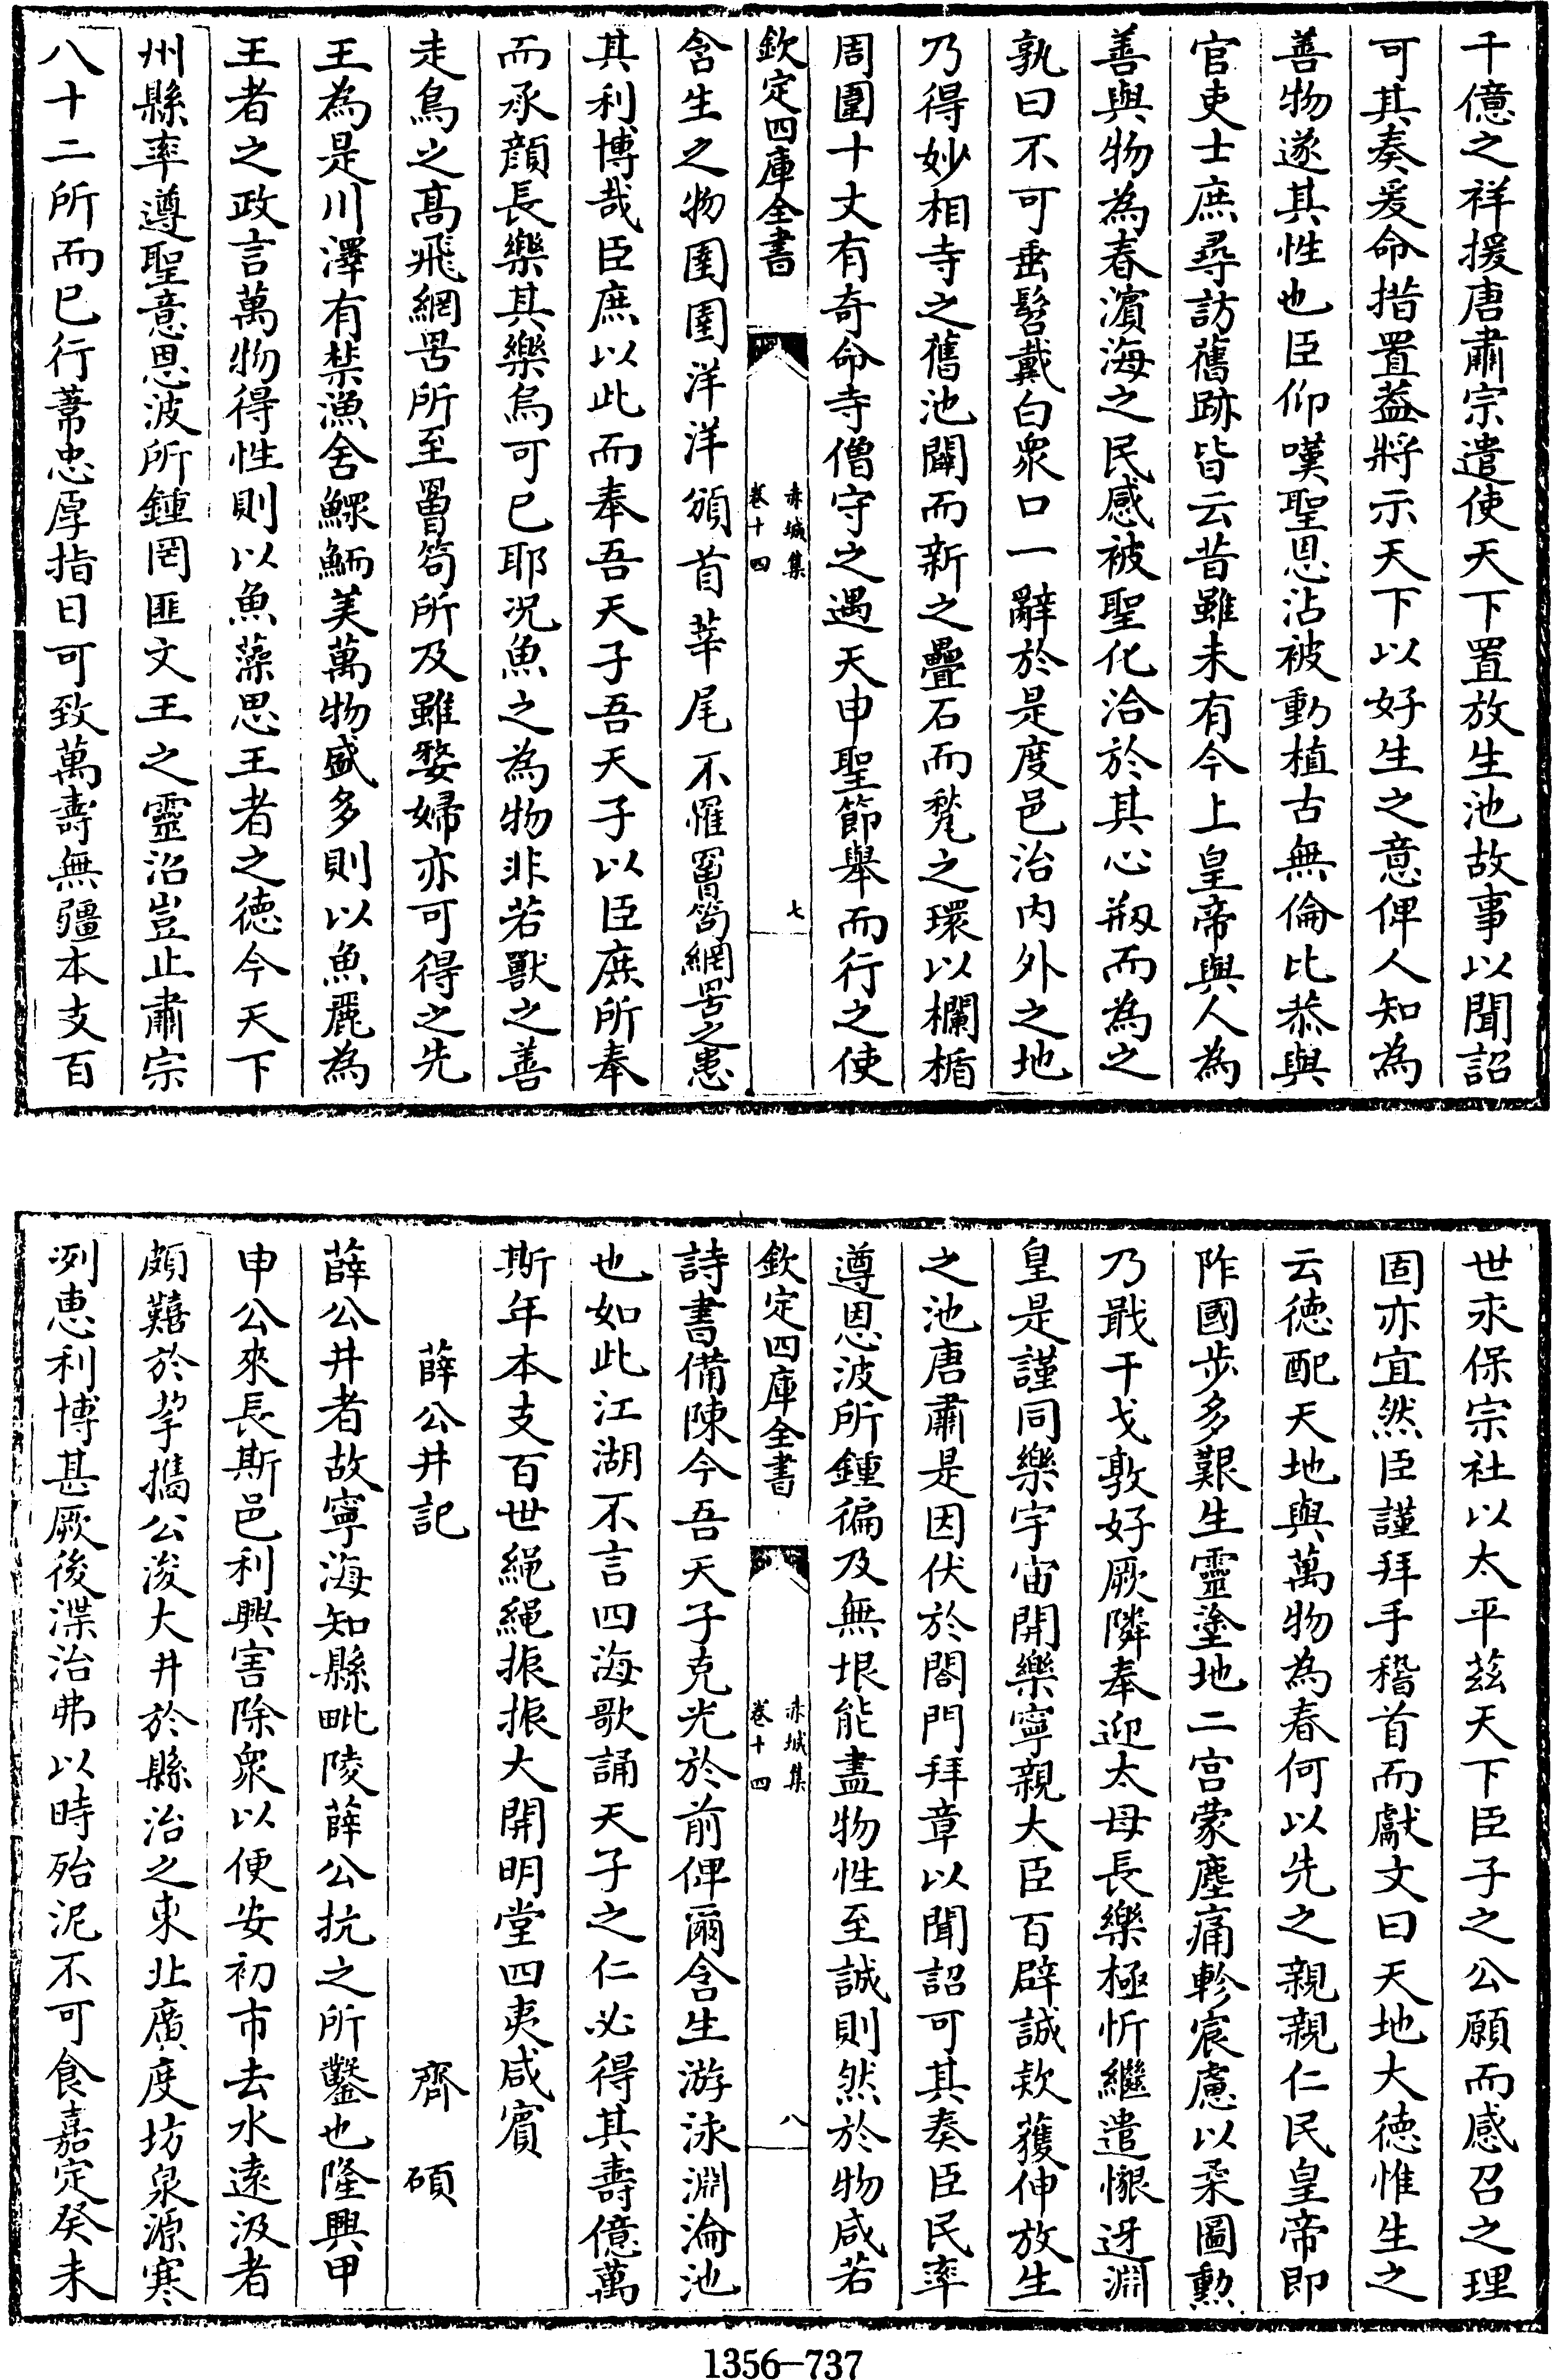 千億之祥援唐肅宗遣使天下置放生池故事以聞詔
可其奏爰命措置葢將示天下以好生之意俾人知為
善物遂其性也臣仰嘆聖恩沾被動植古無倫比恭與
官吏士庶尋訪舊跡皆云昔雖未有今上皇帝與人為
善與物為春濱海之民感被聖化洽於其心剏而為之
孰曰不可垂髫戴白衆口一辭於是度邑治内外之地
乃得妙相寺之舊池闢而新之疊石而甃之環以欄楯
周圍十丈有奇命寺僧守之遇天申聖節舉而行之使
欽定四庫全書
赤城集
卷十四
七
含生之物圉圉洋洋頒首莘尾不罹罾笱網罟之患
其利博哉臣庶以此而奉吾天子吾天子以臣庶所奉
而承顔長樂其樂烏可已耶况魚之為物非若獸之善
走鳥之高飛網罟所至罾笱所及雖嫠婦亦可得之先
王為是川澤有禁漁舍鰥鮞美萬物盛多則以魚麗為
王者之政言萬物得性則以魚藻思王者之德今天下
州縣率遵聖意恩波所鍾罔匪文王之靈沼豈止肅宗
八十二所而已行葦忠厚指日可致萬壽無疆本支百
世永保宗社以太平兹天下臣子之公願而感召之理
固亦宜然臣謹拜手稽首而獻文曰天地大德惟生之
云德配天地與萬物為春何以先之親親仁民皇帝即
阼國步多艱生靈塗地二宫蒙塵痛軫宸慮以柔圖勲
乃戢干戈敦好厥隣奉迎太母長樂極忻繼遣懷迓淵
皇是謹同樂宇宙開樂寧親大臣百辟誠欵獲伸放生
之池唐肅是因伏於閤門拜章以聞詔可其奏臣民率
遵恩波所鍾徧及無垠能盡物性至誠則然於物咸若
欽定四庫全書
赤城集
卷十四
八
詩書備陳今吾天子克光於前俾爾含生游泳淵淪池
也如此江湖不言四海歌誦天子之仁必得其壽億萬
斯年本支百世繩繩振振大開明堂四夷咸賓
薛公井記　齊碩
薛公井者故寧海知縣毗陵薛公抗之所鑿也隆興甲
申公來長斯邑利興害除衆以便安初市去水遠汲者
頗囏於挈擕公浚大井於縣治之東北廣度坊泉源寒
冽惠利博甚厥後渫治弗以時殆泥不可食嘉定癸未
1356—737